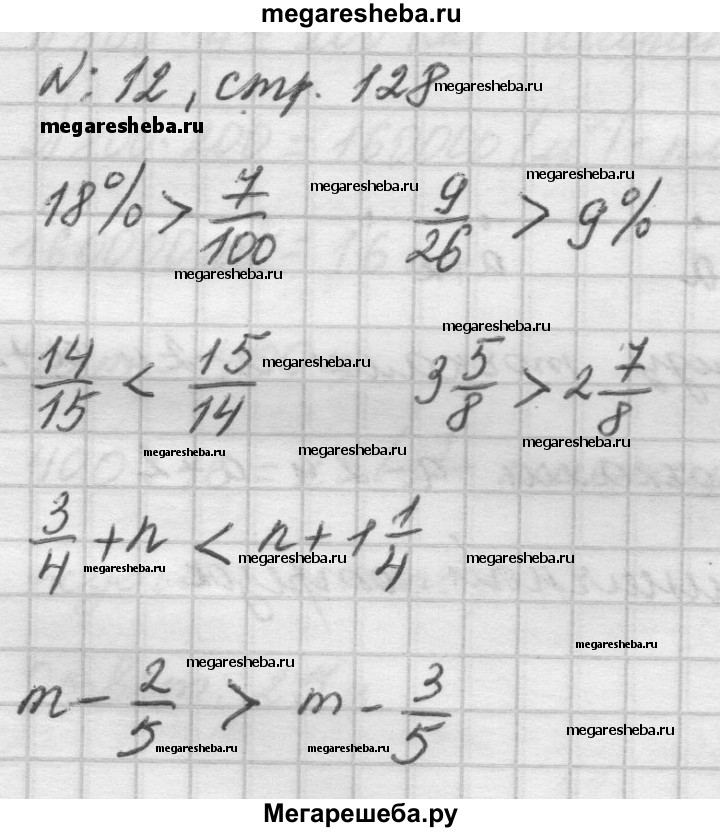 megaresheba.ru
N: 12, стр. 128 megaresheba.ru
megaresheba.ru
18% > 7/100 megaresheba.ru 9/26 > 9% megaresheba.ru
megaresheba.ru
megaresheba.ru
14/15 < 15/14 megaresheba.ru 3 5/8 > 2 7/8
megaresheba.ru megaresheba.ru megaresheba.ru
3/4 + n < n + 1 1/4 megaresheba.ru
megaresheba.ru
megaresheba.ru
megaresheba.ru
m - 2/5 > m - 3/5
megaresheba.ru megaresheba.ru megaresheba.ru
Мегарешеба.ру